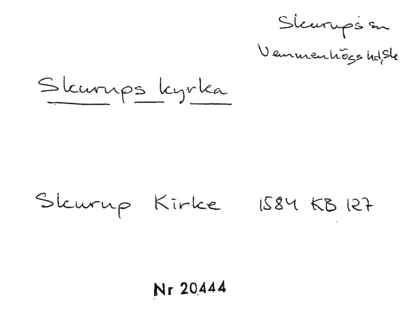 Skurups sn
Vemmenhögs hd, Sk
Skurups kyrka
Skurup Kirke 1584 KB 127
Nr 20444